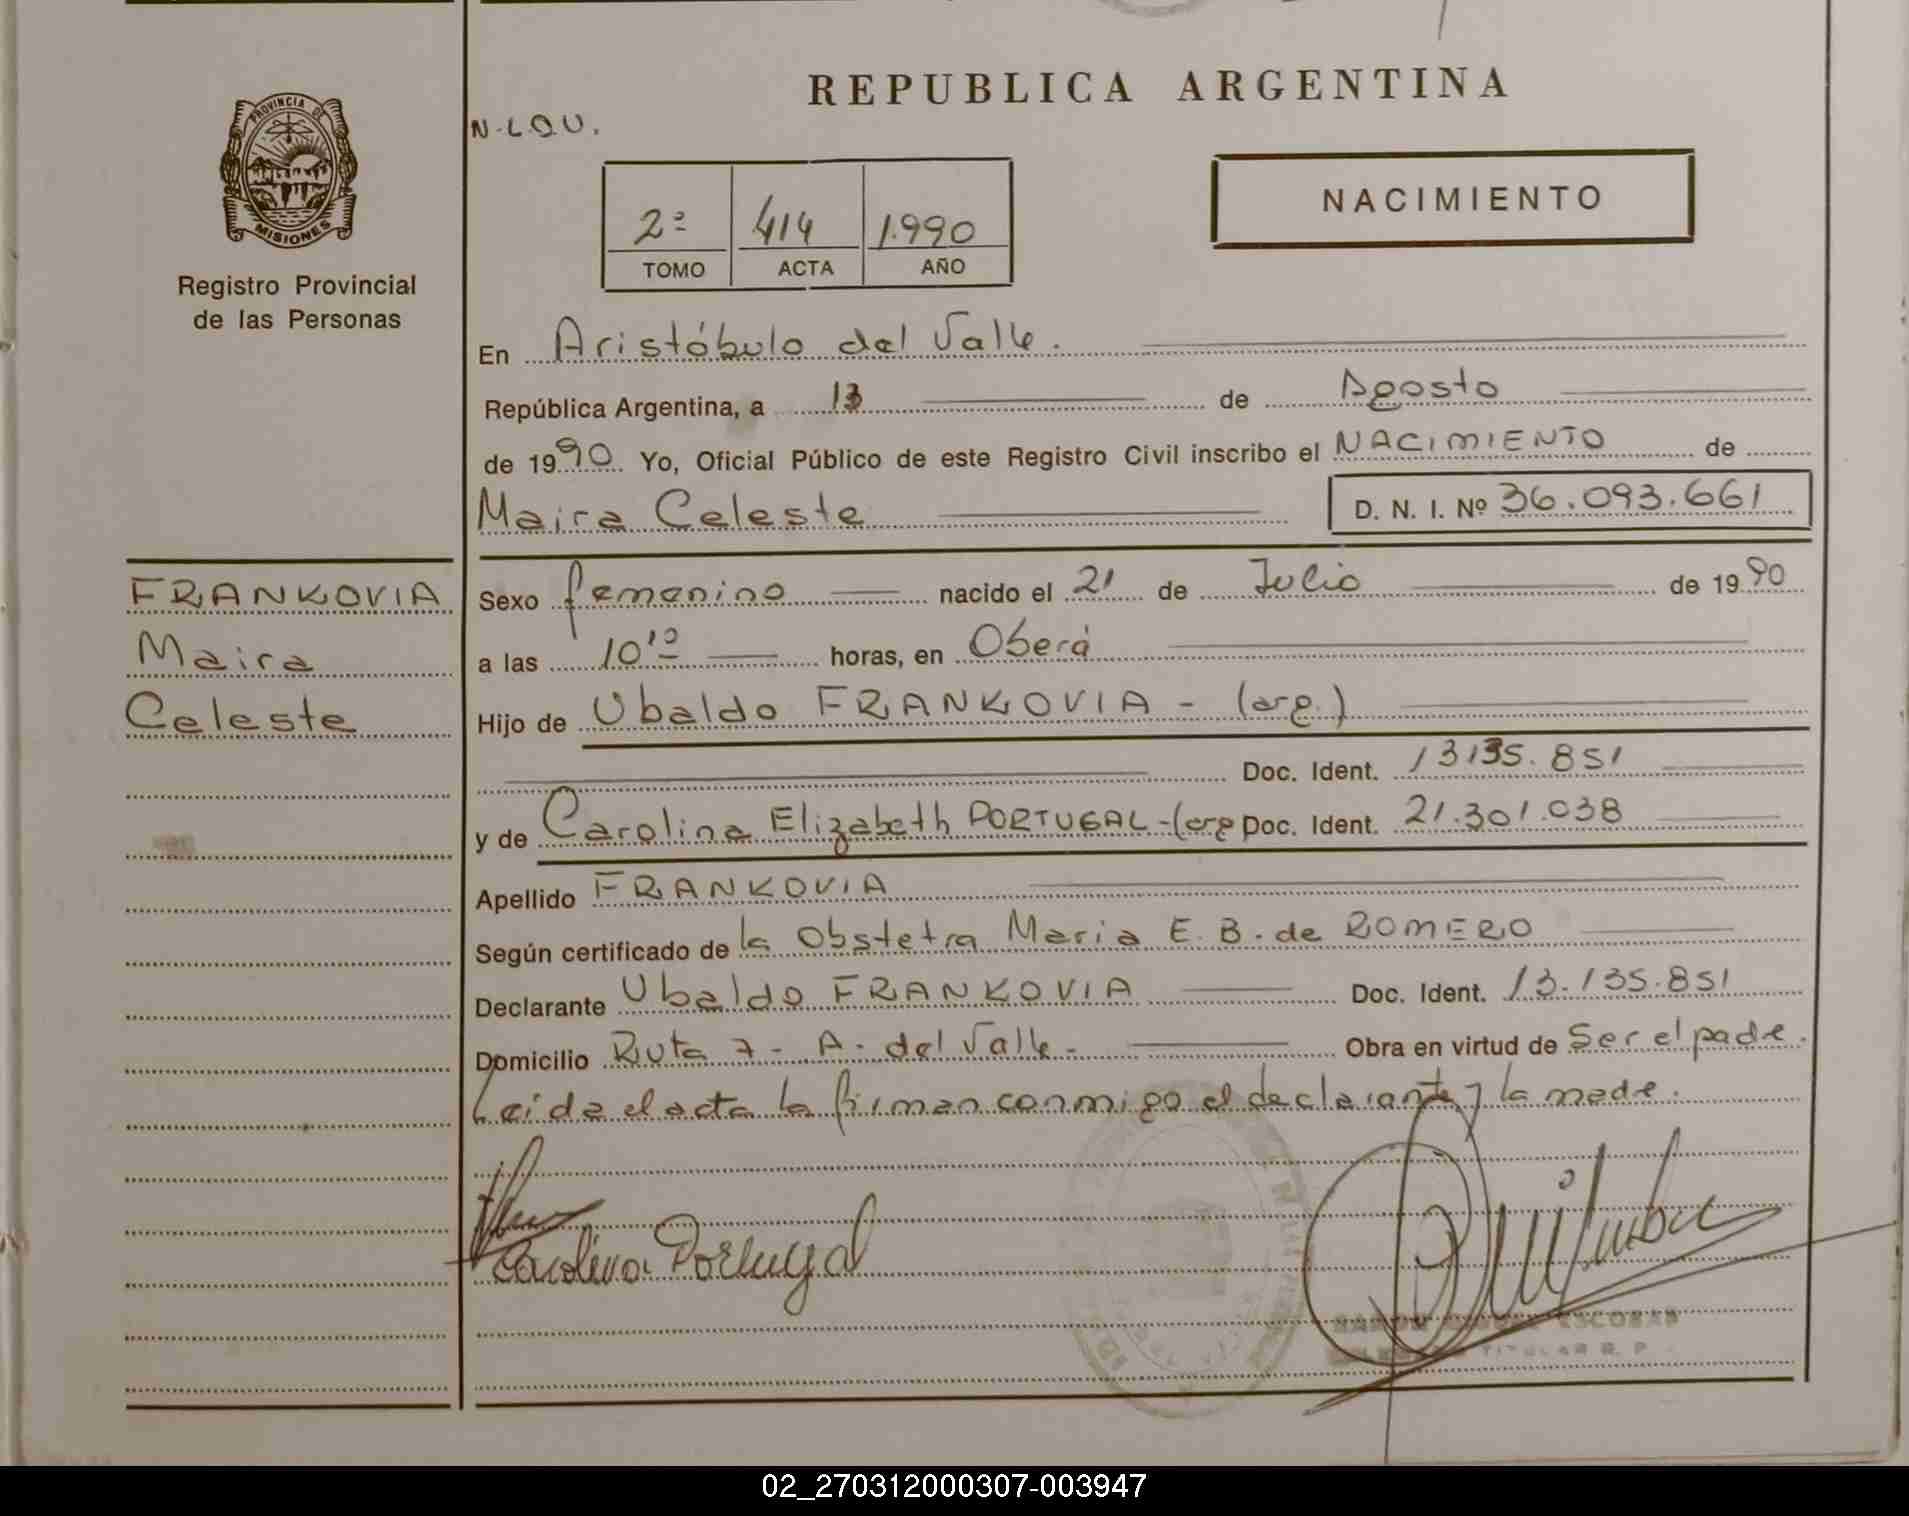 PROVINCIA DE
MISIONES
Registro Provincial
de las Personas
REPUBLICA ARGENTINA
N.L.Q.U.
NACIMIENTO
2º 414 1.990
TOMO ACTA AÑO
En Aristóbulo del Valle.
República Argentina, a 13 de Agosto
de 1990 Yo, Oficial Público de este Registro Civil inscribo el NACIMIENTO de
Maira Celeste D. N. I. Nº 36.093.661
FRANKOVIA
Maira
Celeste
Sexo femenino nacido el 21 de Julio de 1990
a las 10 horas, en Oberá
Hijo de Ubaldo FRANKOVIA - (arg.)
Doc. Ident. 13135.851
y de Carolina Elizabeth PORTUGAL - (arg Doc. Ident. 21.301.038
Apellido FRANKOVIA
Según certificado de la Obstetra Maria E. B. de ROMERO
Declarante Ubaldo FRANKOVIA Doc. Ident. 13.135.851
Domicilio Ruta 7 - A. del Valle - Obra en virtud de Ser el padre.
Leída el acta la firman conmigo el declarante y la madre.
Carolina Portugal
ESCOBAR
TITULAR R. P.
02_270312000307-003947